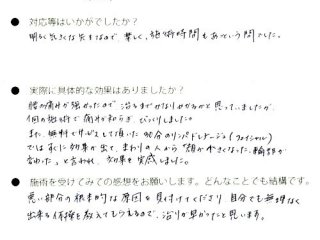 ● 対応等はいかがでしたか？
明るく気さくな先生なので楽しく、施術時間もあっという間でした。
● 実際に具体的な効果はありましたか？
腰の痛みが強かったので治るまでかなりかかるかと思っていましたが、
1回の施術で痛みが和らぎ、びっくりしました。
また、無料でサービスして頂いた 分のリンパドレナージュ(フェイシャル)
ではすぐに効果が出て、まわりの人から"顔が小さくなった、輪郭が
変わった"と言われ、効果を実感しました。
● 施術を受けてみての感想をお願いします。どんなことでも結構です。
悪い部分の根本的な原因を見付けてくださり、自分でも無理なく
出来る体操を教えてもらえるので、治りが早かったと思います。